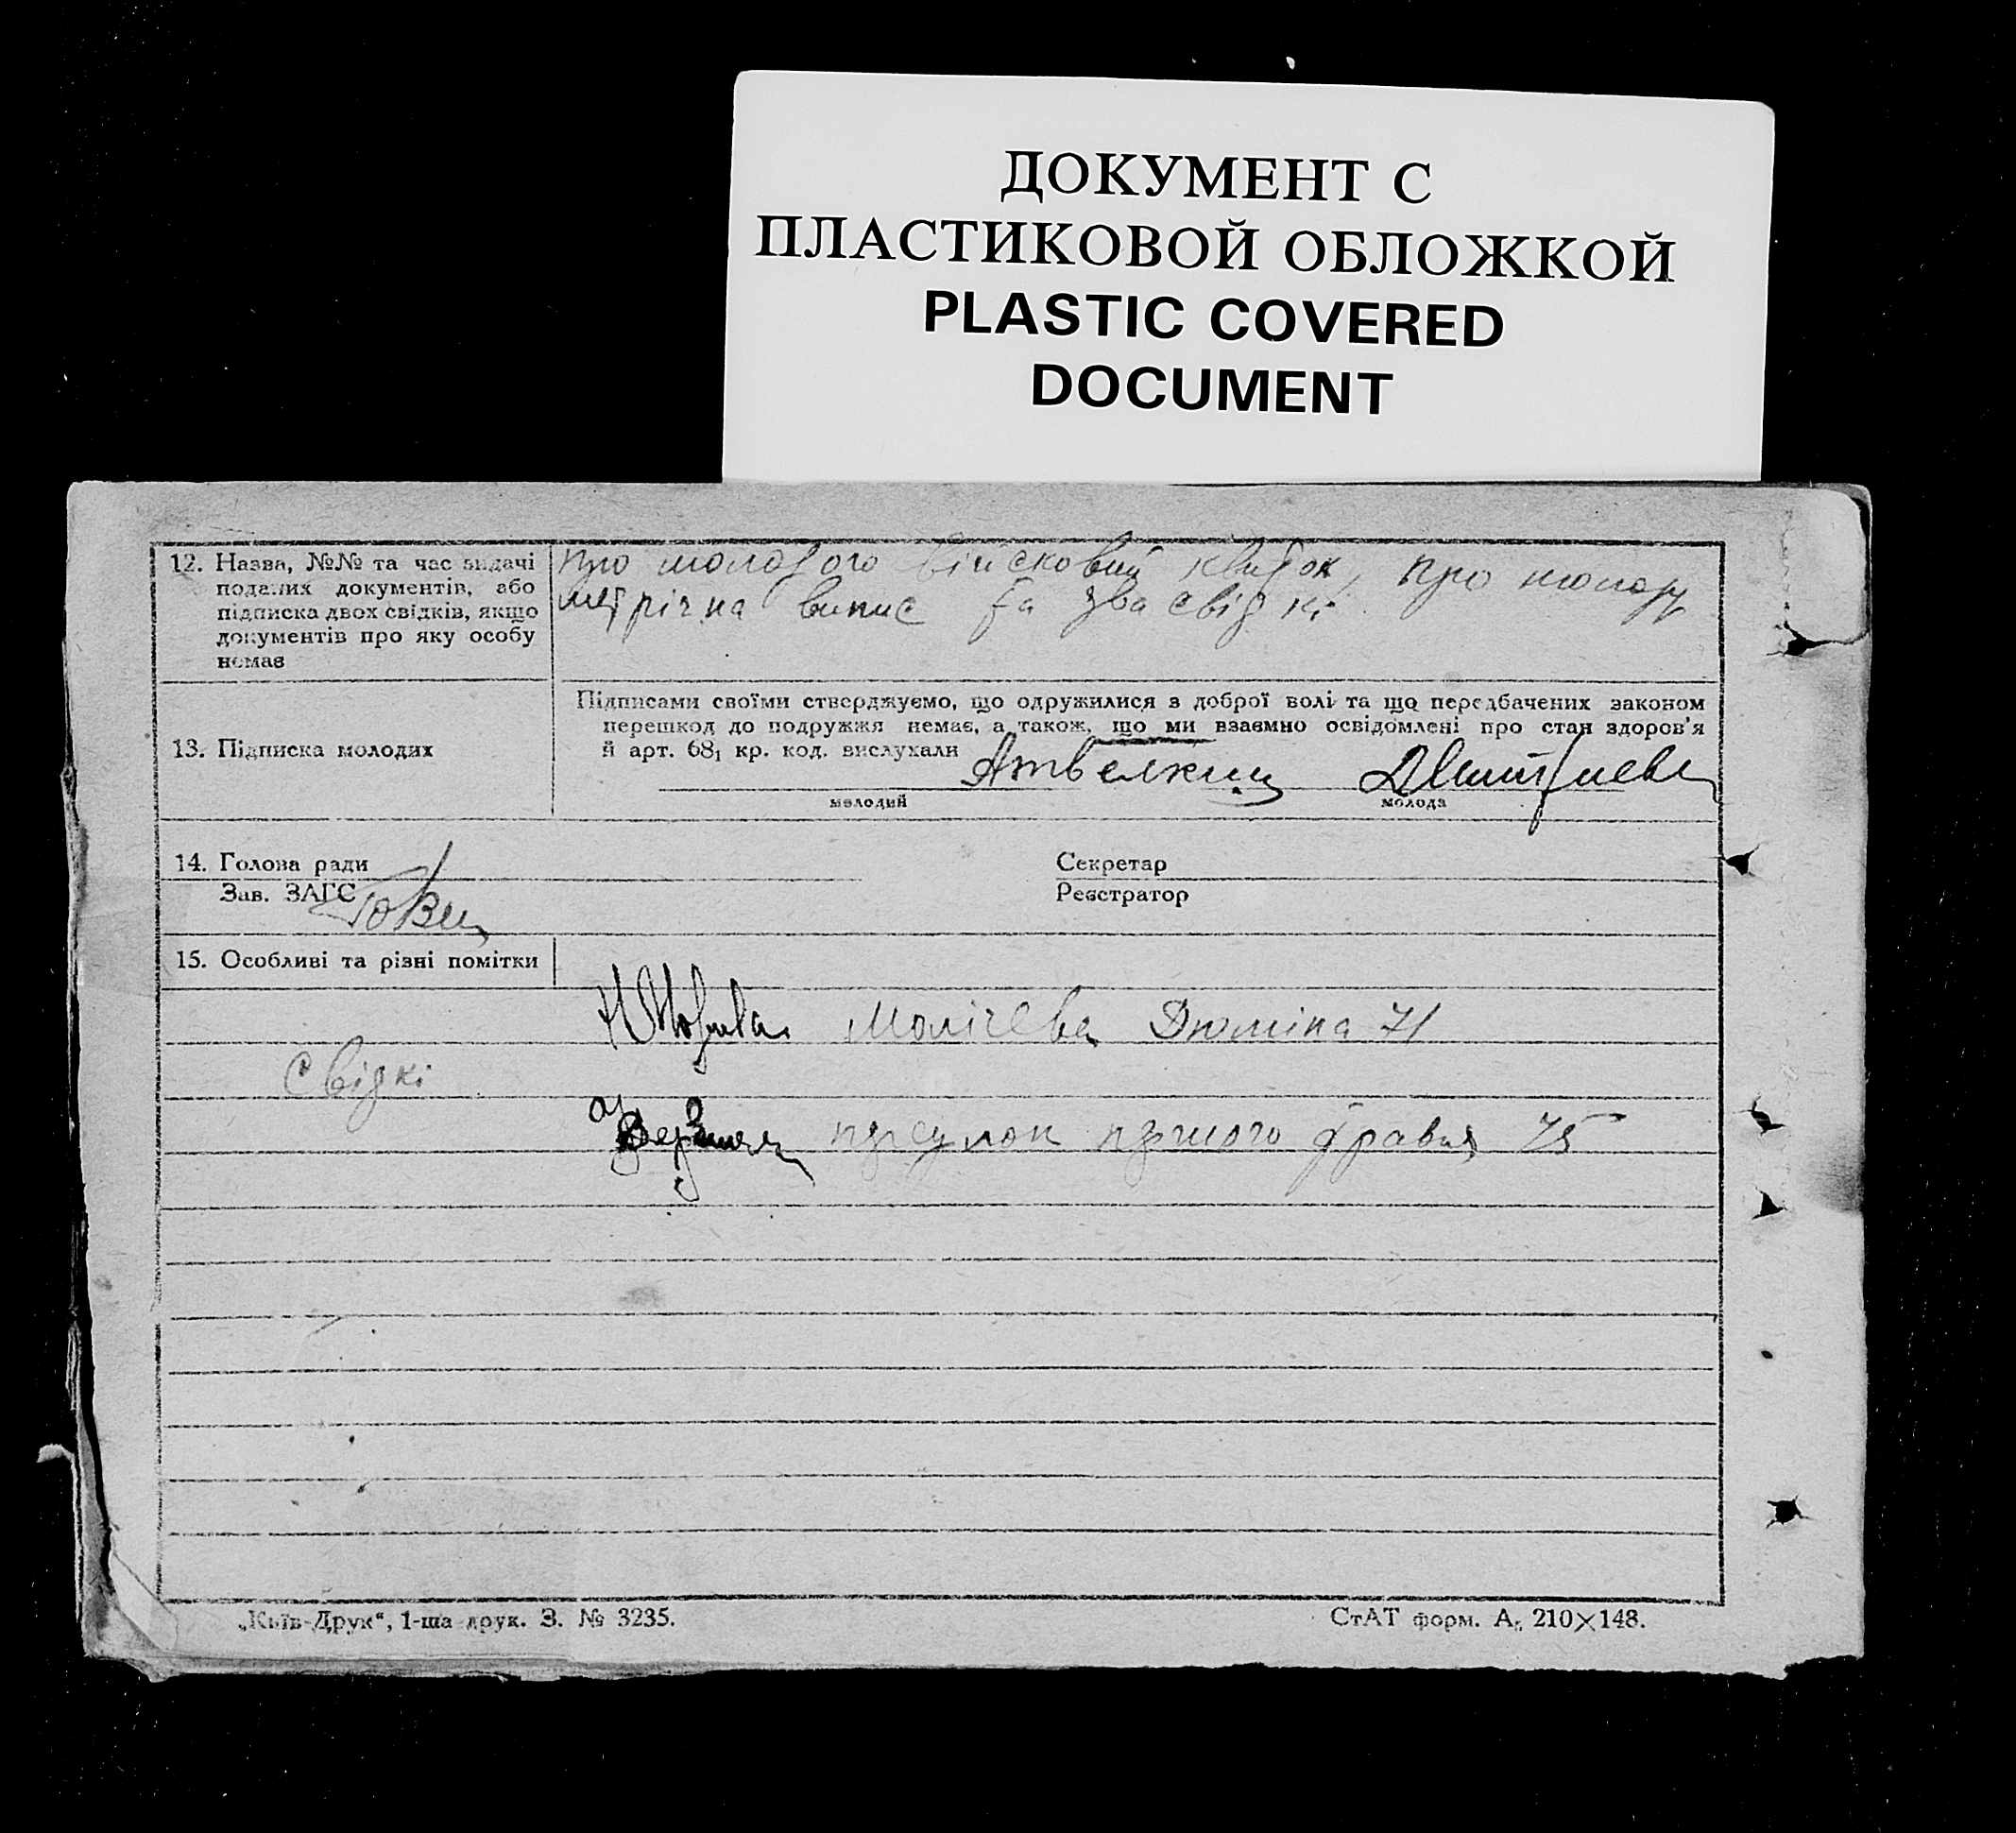 ДОКУМЕНТ С
ПЛАСТИКОВОЙ ОБЛОЖКОЙ
PLASTIC COVERED
DOCUMENT
12. Назва, №№ та час видачі
поданих документів, або
підписка двох свідків, якщо
документів про яку особу
немає
про молодого військовий квиток, про молоду
метрічна випис та два свідки
13. Підписка молодих
Підписами своїми стверджуємо, що одружилися з доброї волі та що передбачених законом
перешкод до подружжя немає, а також, що ми взаємно освідомлені про стан здоров'я
й арт. 68₁ кр. код. вислухали
молодий
молода
14. Голова ради
Секретар
Зав. ЗАГС
Реєстратор
15. Особливі та різні помітки
71
Свідкі
першого травня 75
„Київ-Друк“, 1-ша друк. З. № 3235.
СтАТ форм. А₅ 210×148.